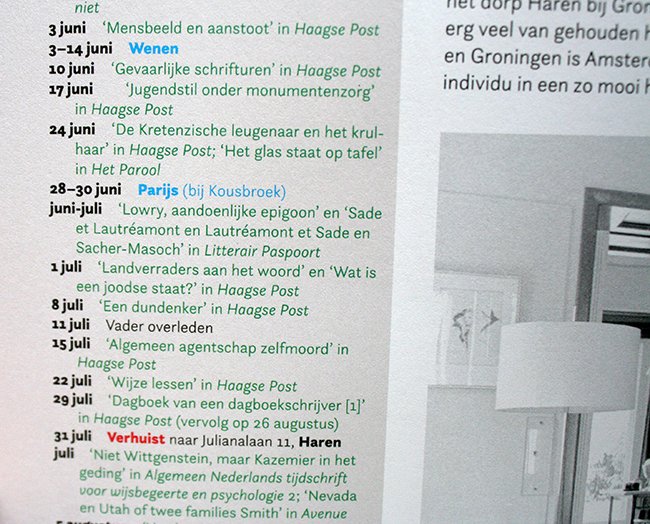 niet
3 juni ‘Mensbeeld en aanstoot’ in Haagse Post
3–14 juni Wenen
10 juni ‘Gevaarlijke schrifturen’ in Haagse Post
17 juni ‘Jugendstil onder monumentenzorg’
in Haagse Post
24 juni ‘De Kretenzische leugenaar en het krul-
haar’ in Haagse Post; ‘Het glas staat op tafel’
in Het Parool
28–30 juni Parijs (bij Kousbroek)
juni-juli ‘Lowry, aandoenlijke epigoon’ en ‘Sade
et Lautréamont en Lautréamont et Sade en
Sacher-Masoch’ in Litterair Paspoort
1 juli ‘Landverraders aan het woord’ en ‘Wat is
een joodse staat?’ in Haagse Post
8 juli ‘Een dundenker’ in Haagse Post
11 juli Vader overleden
15 juli ‘Algemeen agentschap zelfmoord’ in
Haagse Post
22 juli ‘Wijze lessen’ in Haagse Post
29 juli ‘Dagboek van een dagboekschrijver [1]’
in Haagse Post (vervolg op 26 augustus)
31 juli Verhuist naar Julianalaan 11, Haren
juli ‘Niet Wittgenstein, maar Kazemier in het
geding’ in Algemeen Nederlands tijdschrift
voor wijsbegeerte en psychologie 2; ‘Nevada
en Utah of twee families Smith’ in Avenue
het dorp Haren bij Gron
erg veel van gehouden h
en Groningen is Amster
individu in een zo mooi h